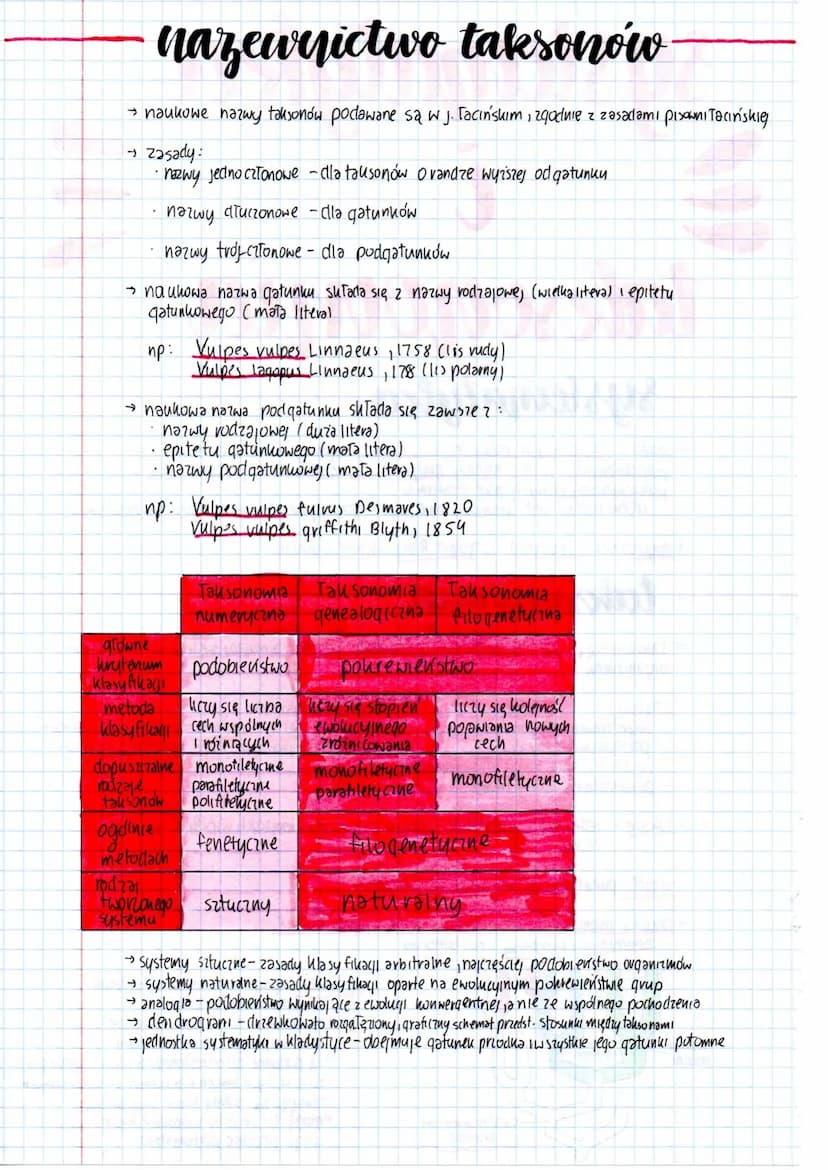 nazewnictwo taksonów
→ naukowe nazwy taksonów podawane są w j. łacińskim, zgodnie z zasadami pisowni łacińskiej
→ zasady:
· nazwy jednoczłonowe - dla taksonów o randze wyższej od gatunku
· nazwy dłuczonowe - dla gatunków
· nazwy trójczłonowe - dla podgatunków
→ naukowa nazwa gatunku składa się z nazwy rodzajowej (wielka litera) i epitetu
gatunkowego (mała litera)
np: Vulpes vulpes Linnaeus, 1758 (lis rudy)
Vulpes lagopus Linnaeus, 178 (lis polarny)
→ naukowa nazwa podgatunku składa się zawsze z:
· nazwy rodzajowej (duża litera)
· epitetu gatunkowego (mała litera)
· nazwy podgatunkowej (mała litera)
np: Vulpes vulpes fulvus Desmares, 1820
Vulpes vulpes griffithi Blyth, 1854
Taksonomia numeryczna | Taksonomia genealogiczna | Taksonomia filogenetyczna
główne kryterium klasyfikacji | podobieństwo | pokrewieństwo
metoda klasyfikacji | liczy się liczba cech wspólnych i różniących | liczy się stopień ewolucyjnego zróżnicowania | liczy się kolejność pojawiania nowych cech
dopuszczalne rodzaje taksonów | monofiletyczne parafiletyczne polifiletyczne | monofiletyczne parafiletyczne | monofiletyczne
ogólnie o metodach | fenetyczne | filogenetyczne
rodzaj tworzonego systemu | sztuczny | naturalny
→ systemy sztuczne - zasady klasyfikacji arbitralne, najczęściej podobieństwo organizmów
→ systemy naturalne - zasady klasyfikacji oparte na ewolucyjnym pokrewieństwie grup
→ analogia - podobieństwo wynikające z ewolucji konwergentnej, a nie ze wspólnego pochodzenia
→ dendrogram - drzewkowato rozgałęziony, graficzny schemat przedst. stosunki między taksonami
→ jednostka systematyki w kladystyce - obejmuje gatunek przodka i wszystkie jego gatunki potomne